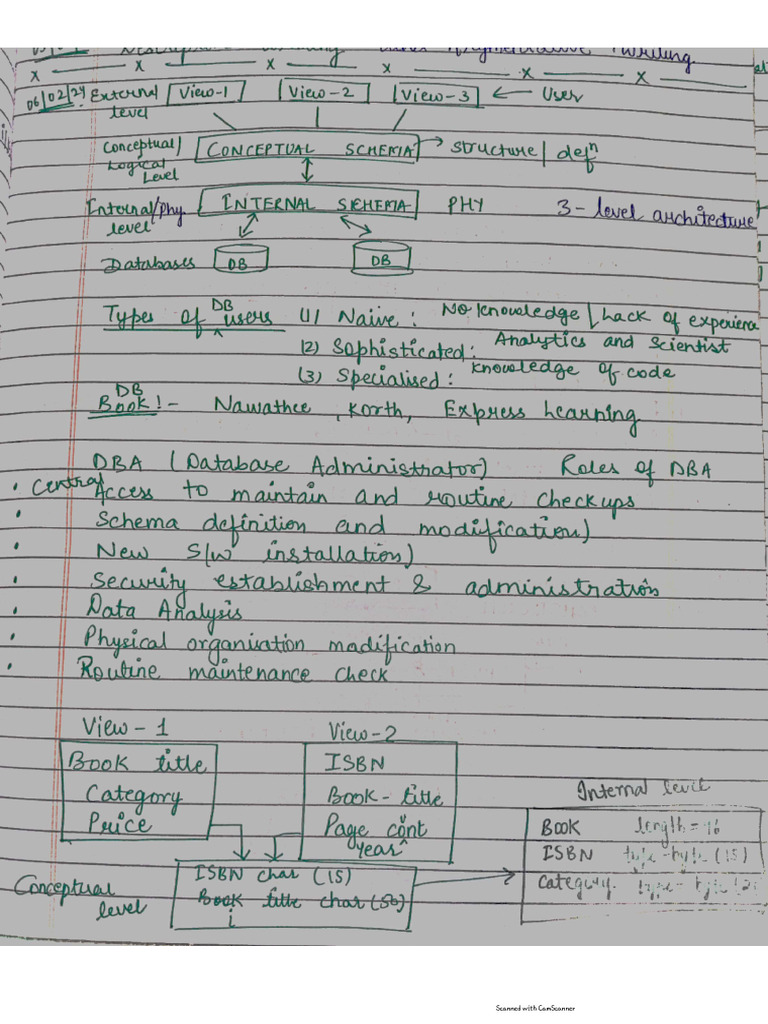 writing
x x x x x x
06/02/24 External level View-1 View-2 View-3 ← User
Conceptual/Logical Level CONCEPTUAL SCHEMA → structure/defⁿ
Internal/Phy level INTERNAL SCHEMA PHY 3-level architecture
Databases DB DB
Types of DB users (1) Naive: No knowledge/Lack of experience
(2) Sophisticated: Analytics and Scientist
(3) Specialised: knowledge of code
DB Book!- Nawathee, Korth, Express Learning
DBA (Database Administrator) Roles of DBA
• Central Access to maintain and routine checkups
• Schema definition and modification)
• New S/w installation)
• Security establishment & administration
• Data Analysis
• Physical organisation modification
• Routine maintenance check
View-1 View-2
Book title ISBN
Category Book-title
Price Page count
year
Internal level
BOOK length=16
ISBN type-byte(15)
Category
Conceptual level
ISBN char (15)
Book title char(50)
Scanned with CamScanner